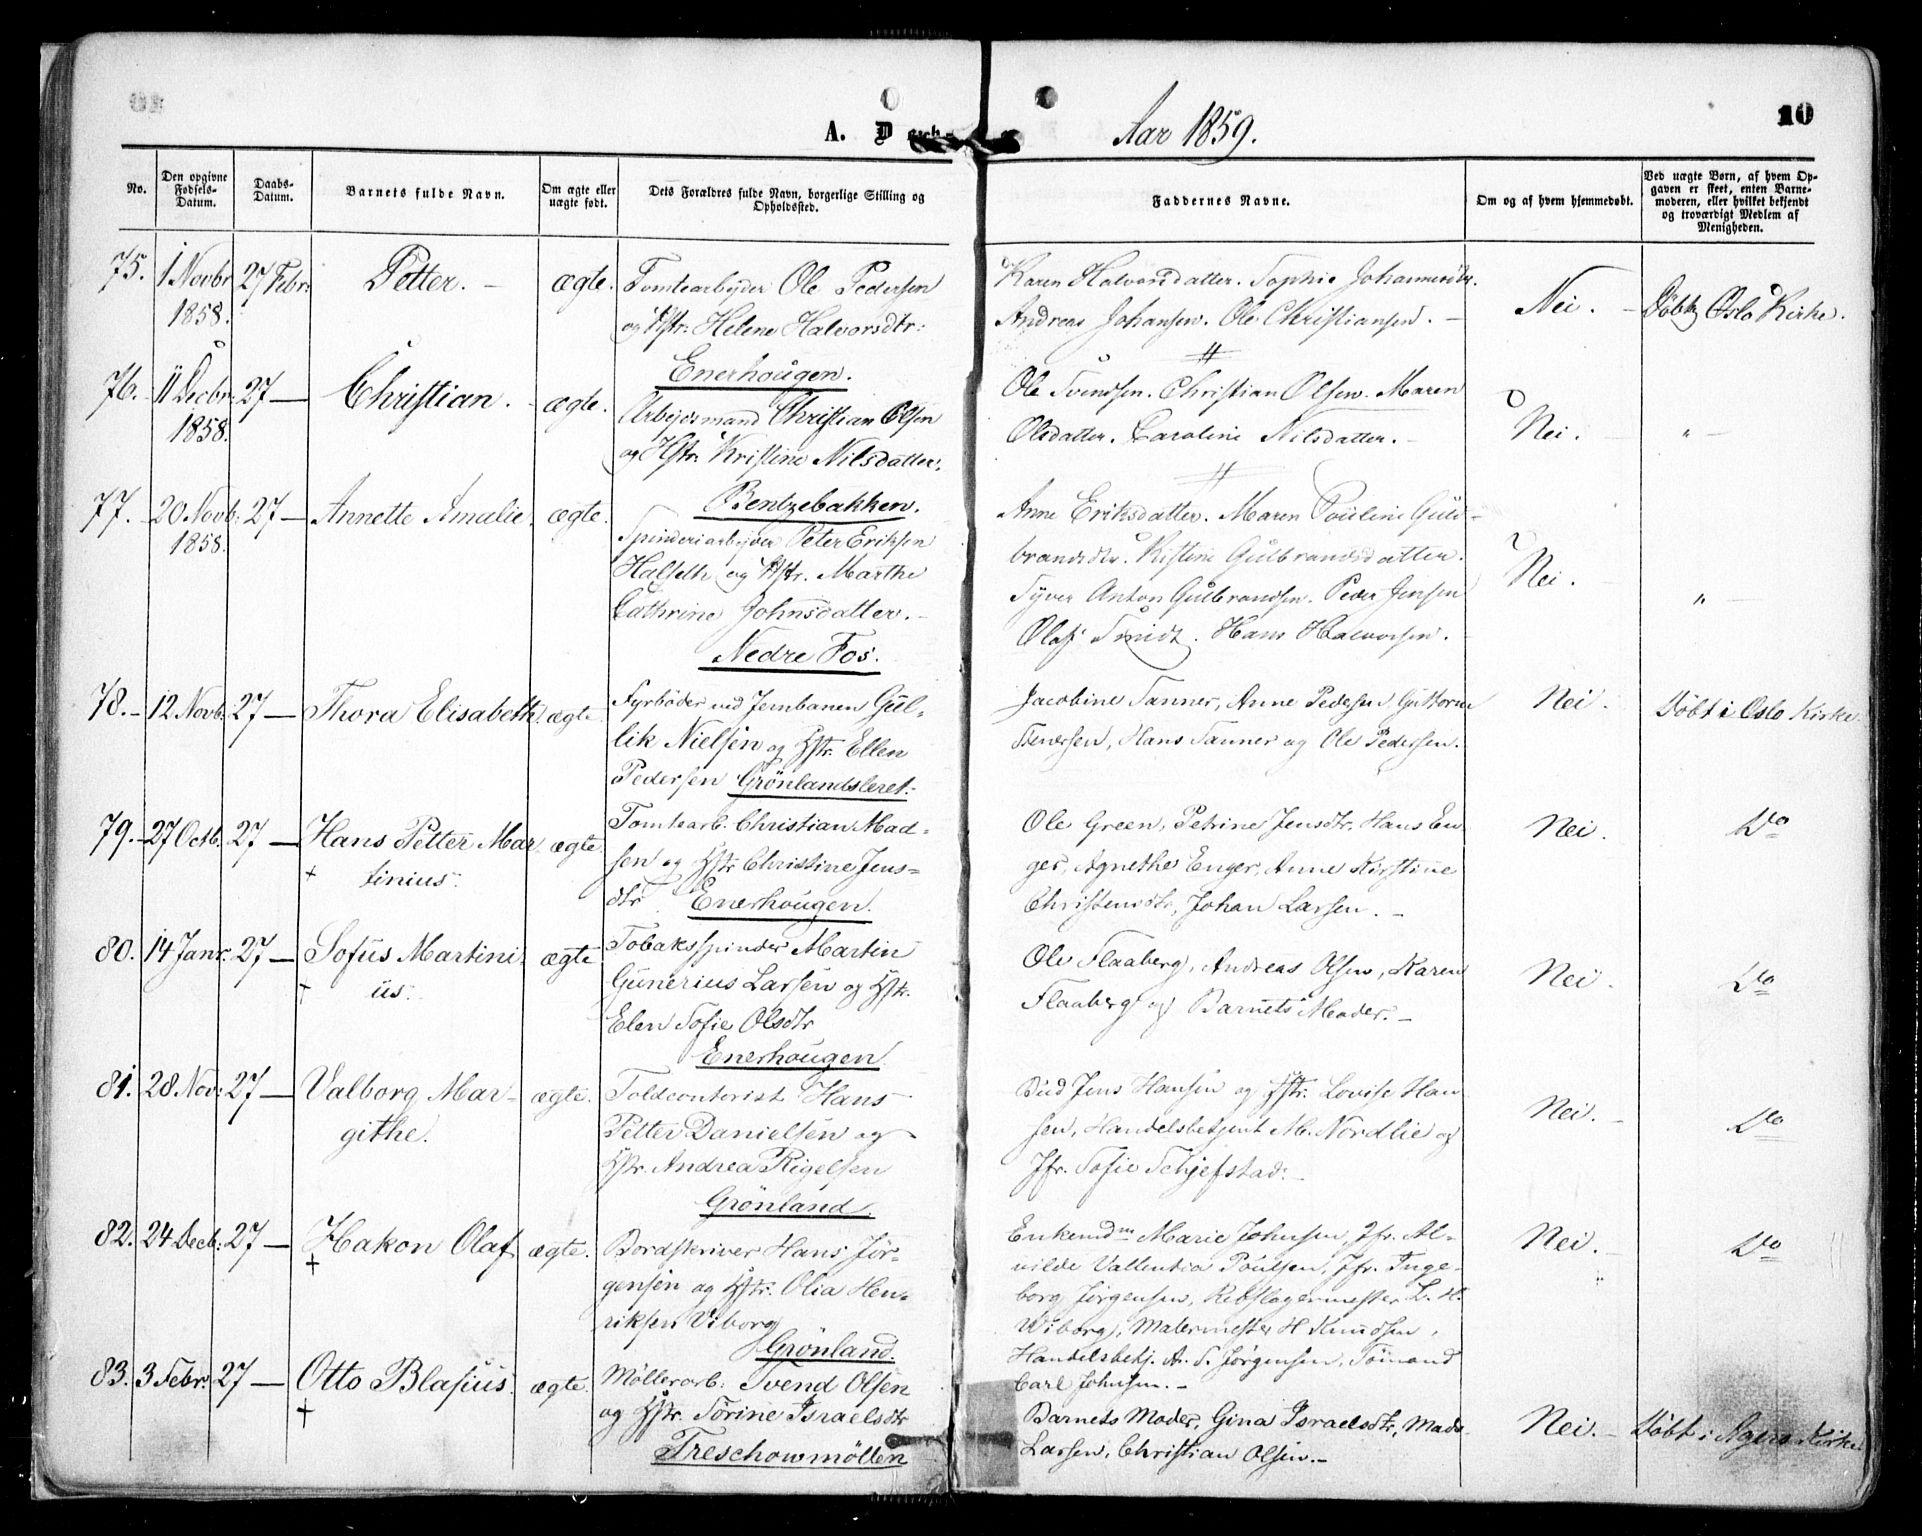 A. D
Aar 1859.
10
No.
Den opgivne Fødsels-Datum.
Daabs-Datum.
Barnets fulde Navn.
Om ægte eller uægte født.
Dets Forældres fulde Navn, borgerlige Stilling og Opholdssted.
Faddernes Navne.
Om og af hvem hjemmedøbt.
Ved uægte Børn, af hvem Opgaven er skeet, enten Barnemoderen, eller hvilket bekjendt og troværdigt Medlem af Menigheden.
75. 1 Novbr 1858. 27 Febr: Petter. ægte.
Tomtearbeyder Ole Pedersen
og Hstr: Helene Halvorsdtr:
Enerhougen.
Karen Halvorsdatter. Sophie Johannesdtr.
Andreas Johansen. Ole Christiansen.
Nei. Döbt Oslo Kirke.
76. 11 Decbr 1858. 27 — Christian. ægte.
Arbejdsmand Christian Olsen
og Hstr. Kristine Nilsdatter.
Bentzebakken.
Ole Svendsen. Christian Olsen. Maren
Olsdatter. Caroline Nilsdatter.
Nei. " —
77. 20 Novb: 1858. 27 — Annette Amalie. ægte.
Spinderiarbejder Peter Eriksen
Halseth og Hstr. Marthe
Cathrine Johnsdatter.
Nedre Fos.
Anne Eriksdatter. Maren Pouline Gul-
brandsdtr. Kistine Gulbrandsdatter.
Syver Anton Gulbrandsen. Peder Jensen
Olaf Smidt. Hans Halvorsen.
Nei. " —
78. 12 Novb. 27 — Thora Elisabeth ægte
Fyrböder ved Jernbanen Gul-
lik Nielsen og Hstr. Ellen
Pedersen Grönlandsleret.
Jacobine Tanner, Anne Pedersen Guttorm
Hans Tanner og Ole Pedersen.
Nei. Döbt i Oslo Kirke.
79. 27 Octb. 27 — Hans Petter Mar- ægte
+ tinius.
Tomtearb. Christian Mad-
sen og Hstr Christine Jens-
dtr Enerhougen.
Ole Green, Petrine Jensdtr. Hans En
ger, Agnethe Enger, Anne Kirstine
Christensdtr, Johan Larsen.
Nei. Do
80. 14 Janr. 27 — Sofus Martini- ægte
+ us.
Tobaksspinder Martin
Gunerius Larsen og Hstr.
Elen Sofie Olsdtr
Enerhougen
Ole Flaaberg, Andreas Olsen, Karen
Flaaberg og Barnets Moder.
Nei. Do
81. 28 Nov: 27 — Valborg Mar- ægte.
githe.
Toldcontorist Hans
Petter Danielsen og
Hstr. Andrea Rigelsen
Grönland.
Bud Jens Hansen og Hstr. Lovise Han
sen, Handelsbetjent M. Nordlie og
Jfr. Sofie Schjefstad.
Nei. Do
82. 24 Decb: 27 — Hakon Olaf ægte.
+
Bordskriver Hans Jör-
gensen og Hstr. Olia Hen-
riksen Viborg
Grönland.
Enkemdm Marie Johnsen, Jfr. Al-
vilde Vallentia Poulsen, Jfr. Inge-
borg Jörgensen, Rebslagermester L. H.
Wiborg, Malermester H Knudsen,
Handelsbetj. A. T. Jörgensen, Sömand
Carl Johnsen.
Nei. Do
83. 3 Febr. 27 — Otto Blasius. ægte.
+
Möllerarb: Svend Olsen
og Hstr. Torine Israelsdtr
Treschowmöllen
Barnets Moder, Gina Israelsdtr, Mads
Larsen, Christian Olsen.
Nei. Döbt i Agers Kirke